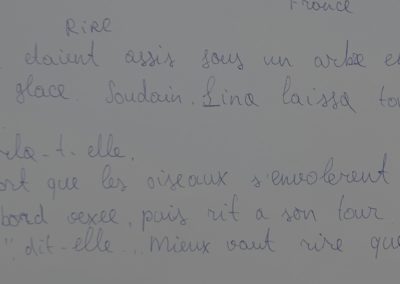 France
RIRE
etaient assis sous un arbre e
glace. Soudain. Lina laissa to
rla-t-elle.
ort que les oiseaux s'envolerent
bord vexee, puis rit a son tour.
", dit-elle... Mieux vaut rire que